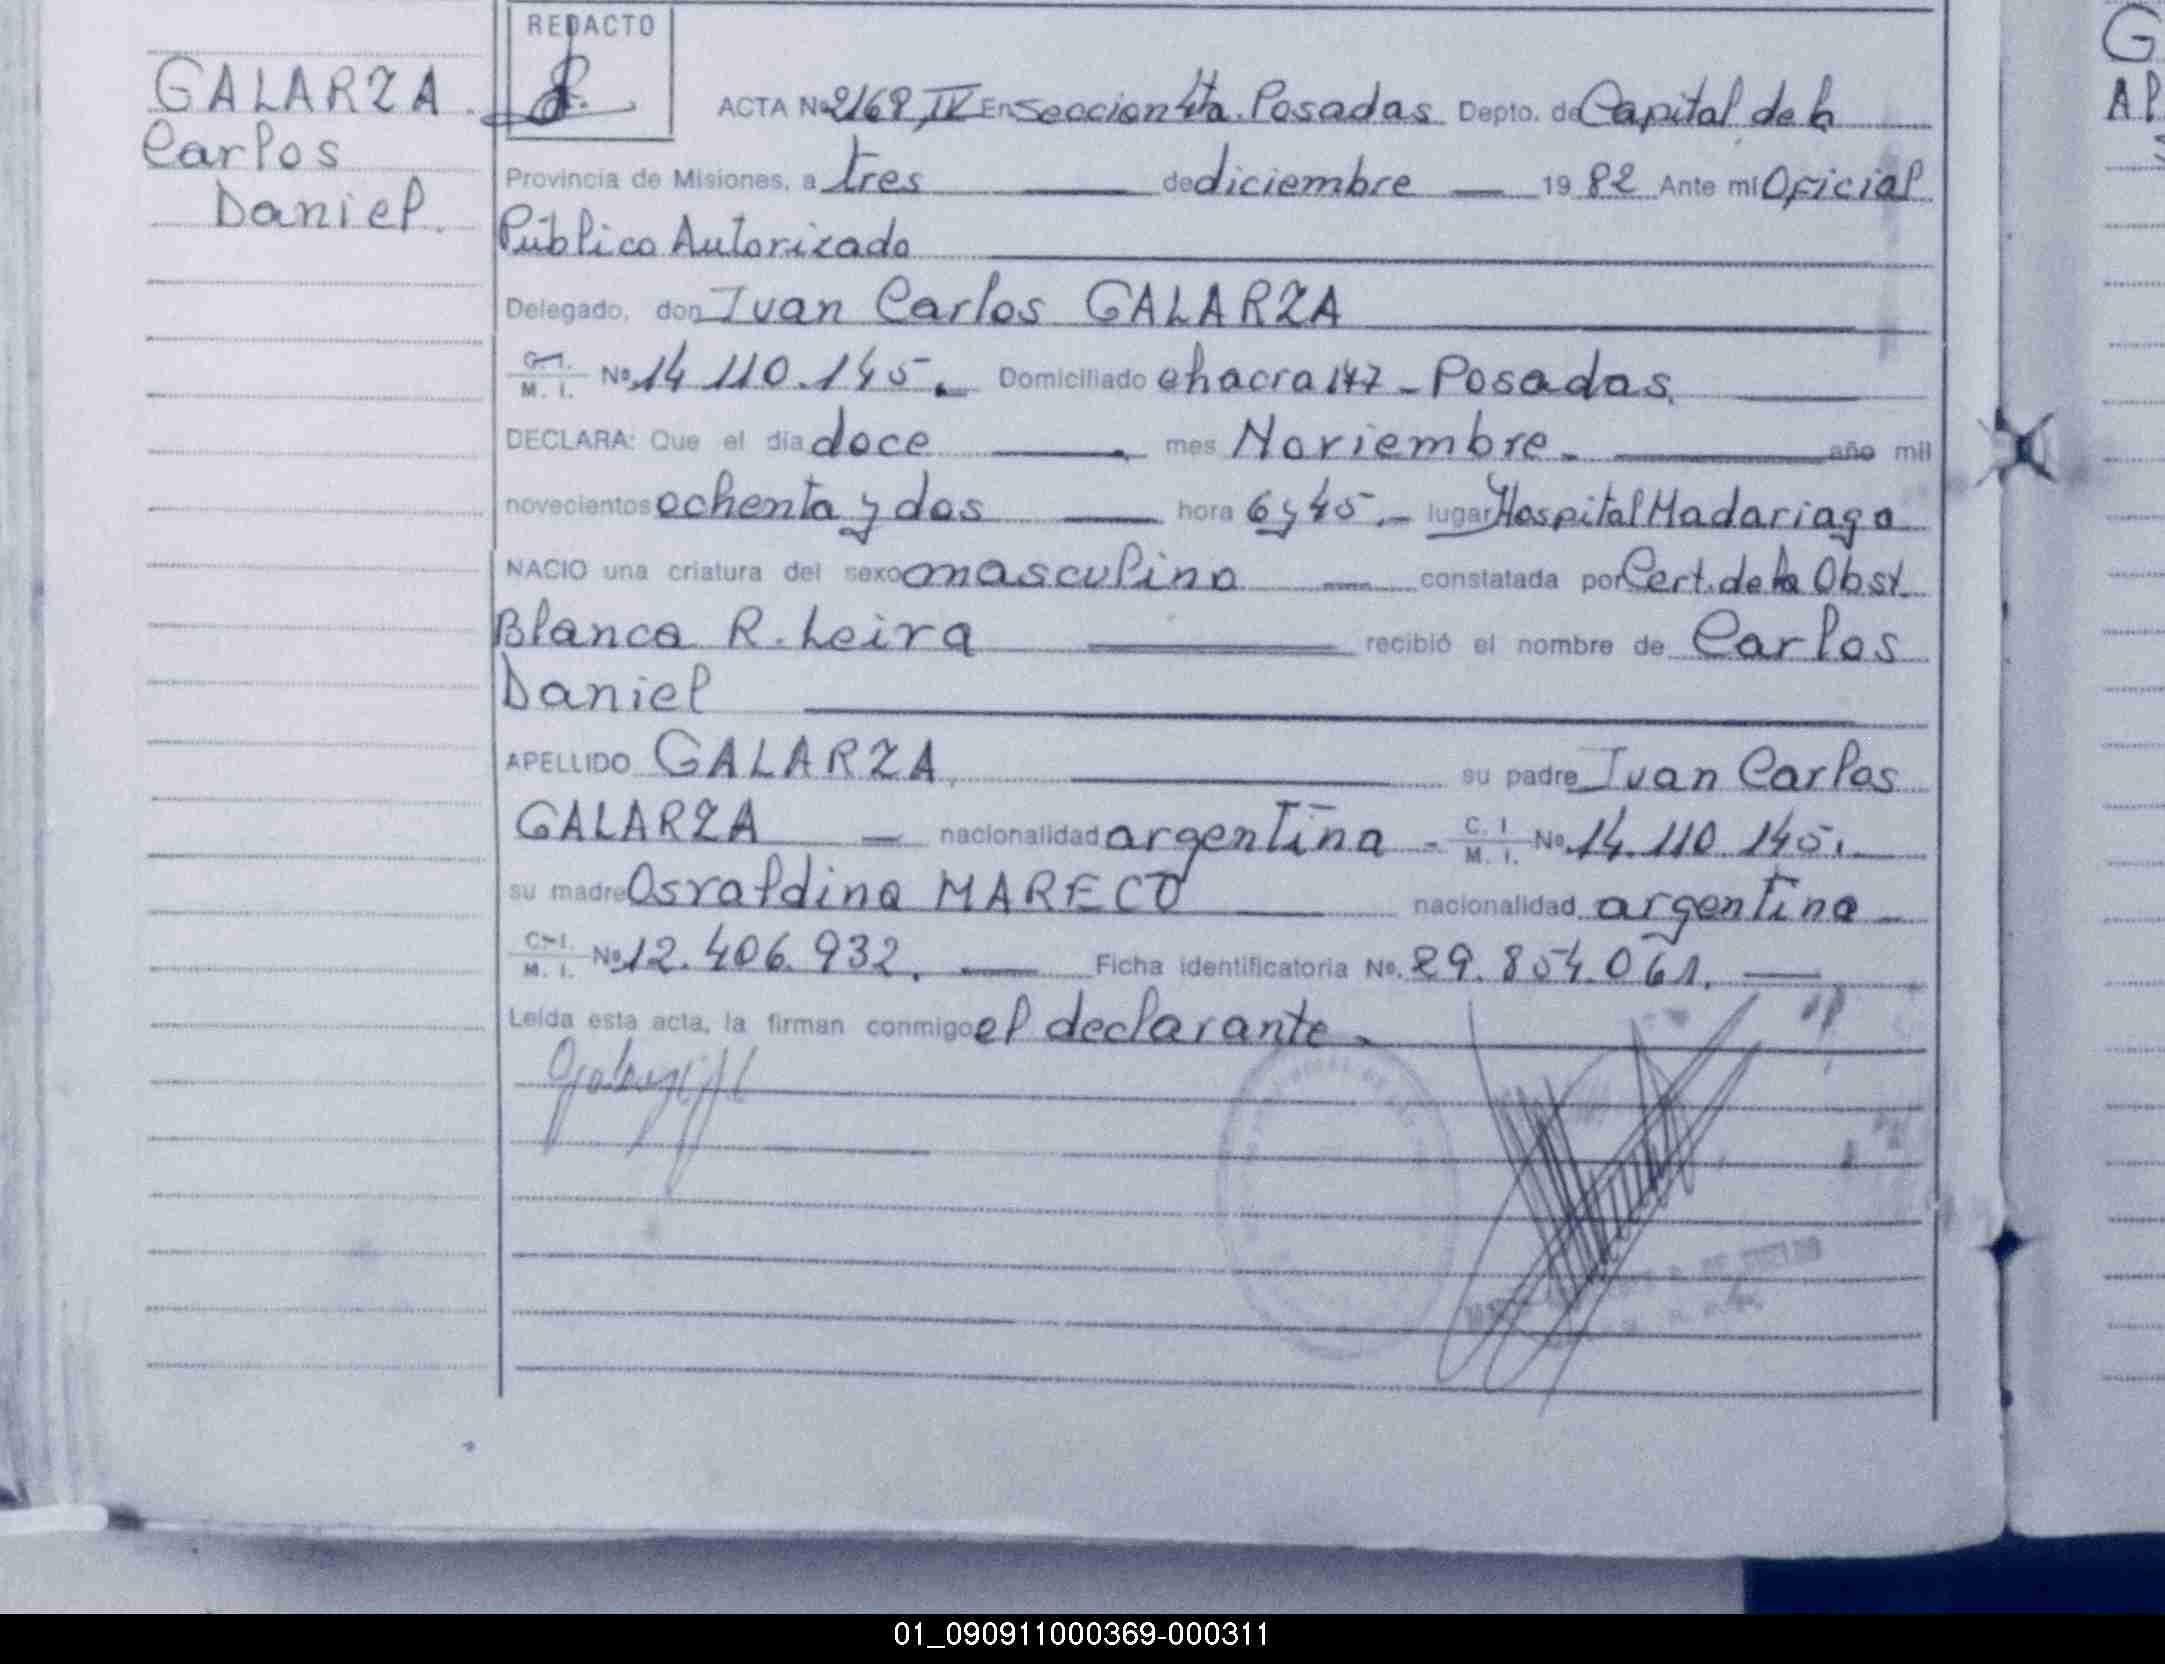 GALARZA
Carlos
Daniel.
REDACTO
ACTA Nº 2168, IV En Seccion 4ta. Posadas Depto. de Capital de la
Provincia de Misiones, a tres de diciembre 19 82 Ante mi Oficial
Público Autorizado
Delegado, don Juan Carlos GALARZA
C. I.
M. I. Nº 14.110.145. Domiciliado chacra 147 - Posadas.
DECLARA: Que el día doce mes Noviembre. año mil
novecientos ochenta y dos hora 6 y 45.- lugar Hospital Madariaga
NACIO una criatura del sexo masculino constatada por Cert. de la Obst.
Blanca R. Leira recibió el nombre de Carlos
Daniel
APELLIDO GALARZA su padre Juan Carlos
GALARZA nacionalidad argentina - C. I.
M. I. Nº 14.110.145.
su madre Osvaldina MARECO nacionalidad argentina
C. I.
M. I. Nº 12.406.932. Ficha identificatoria Nº. 29.854.061.
Leída esta acta, la firman conmigo el declarante.
G
AP
01_090911000369-000311